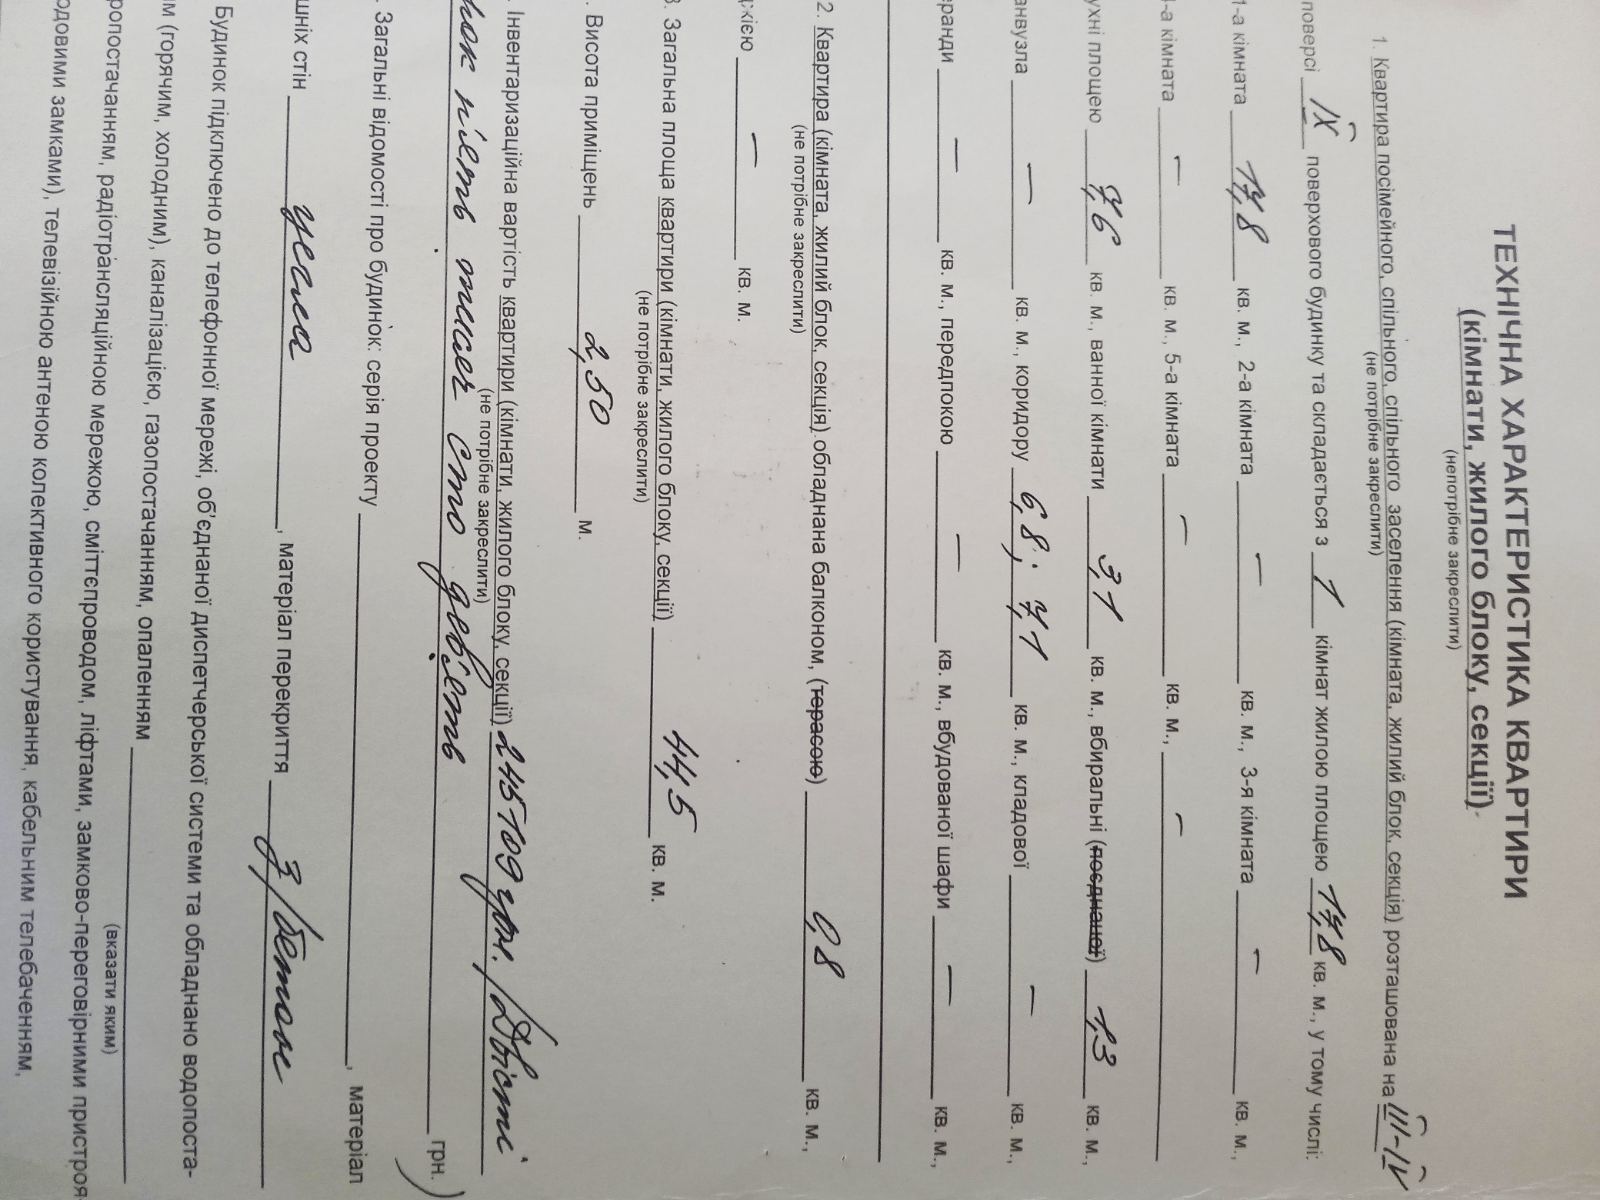 ТЕХНІЧНА ХАРАКТЕРИСТИКА КВАРТИРИ
(кімнати, жилого блоку, секції)
(непотрібне закреслити)
1. Квартира посімейного, спільного, спільного заселення (кімната, жилий блок, секція) розташована на III-IV
(не потрібне закреслити)
поверсі IX поверхового будинку та складається з 1 кімнат жилою площею 17,8 кв. м., у тому числі:
1-а кімната 17,8 кв. м., 2-а кімната — кв. м., 3-я кімната — кв. м.,
-а кімната — кв. м., 5-а кімната — кв. м., —
ухні площею 7,6 кв. м., ванної кімнати 3,1 кв. м., вбиральні (поєднаної) 1,3 кв. м.,
анвузла — кв. м., коридору 6,8; 7,1 кв. м., кладової — кв. м.,
еранди — кв. м., передпокою — кв. м., вбудованої шафи — кв. м.,
2. Квартира (кімната, жилий блок, секція) обладнана балконом, (терасою) 0,8 кв. м.,
(не потрібне закреслити)
джією — кв. м.
3. Загальна площа квартири (кімнати, жилого блоку, секції) 44,5 кв. м.
(не потрібне закреслити)
. Висота приміщень 2,50 м.
. Інвентаризаційна вартість квартири (кімнати, жилого блоку, секції) 245109 грн. (Двісті
(не потрібне закреслити)
рок п'ять тисяч сто дев'ять грн.)
. Загальні відомості про будинок: серія проекту , матеріал
шніх стін цегла , матеріал перекриття з/бетон
Будинок підключено до телефонної мережі, об'єднаної диспетчерської системи та обладнано водопоста-
ям (горячим, холодним), каналізацією, газопостачанням, опаленням
(вказати яким)
ропостачанням, радіотрансляційною мережою, сміттєпроводом, ліфтами, замково-переговірними пристроя-
одовими замками), телевізійною антеною колективного користування, кабельним телебаченням,